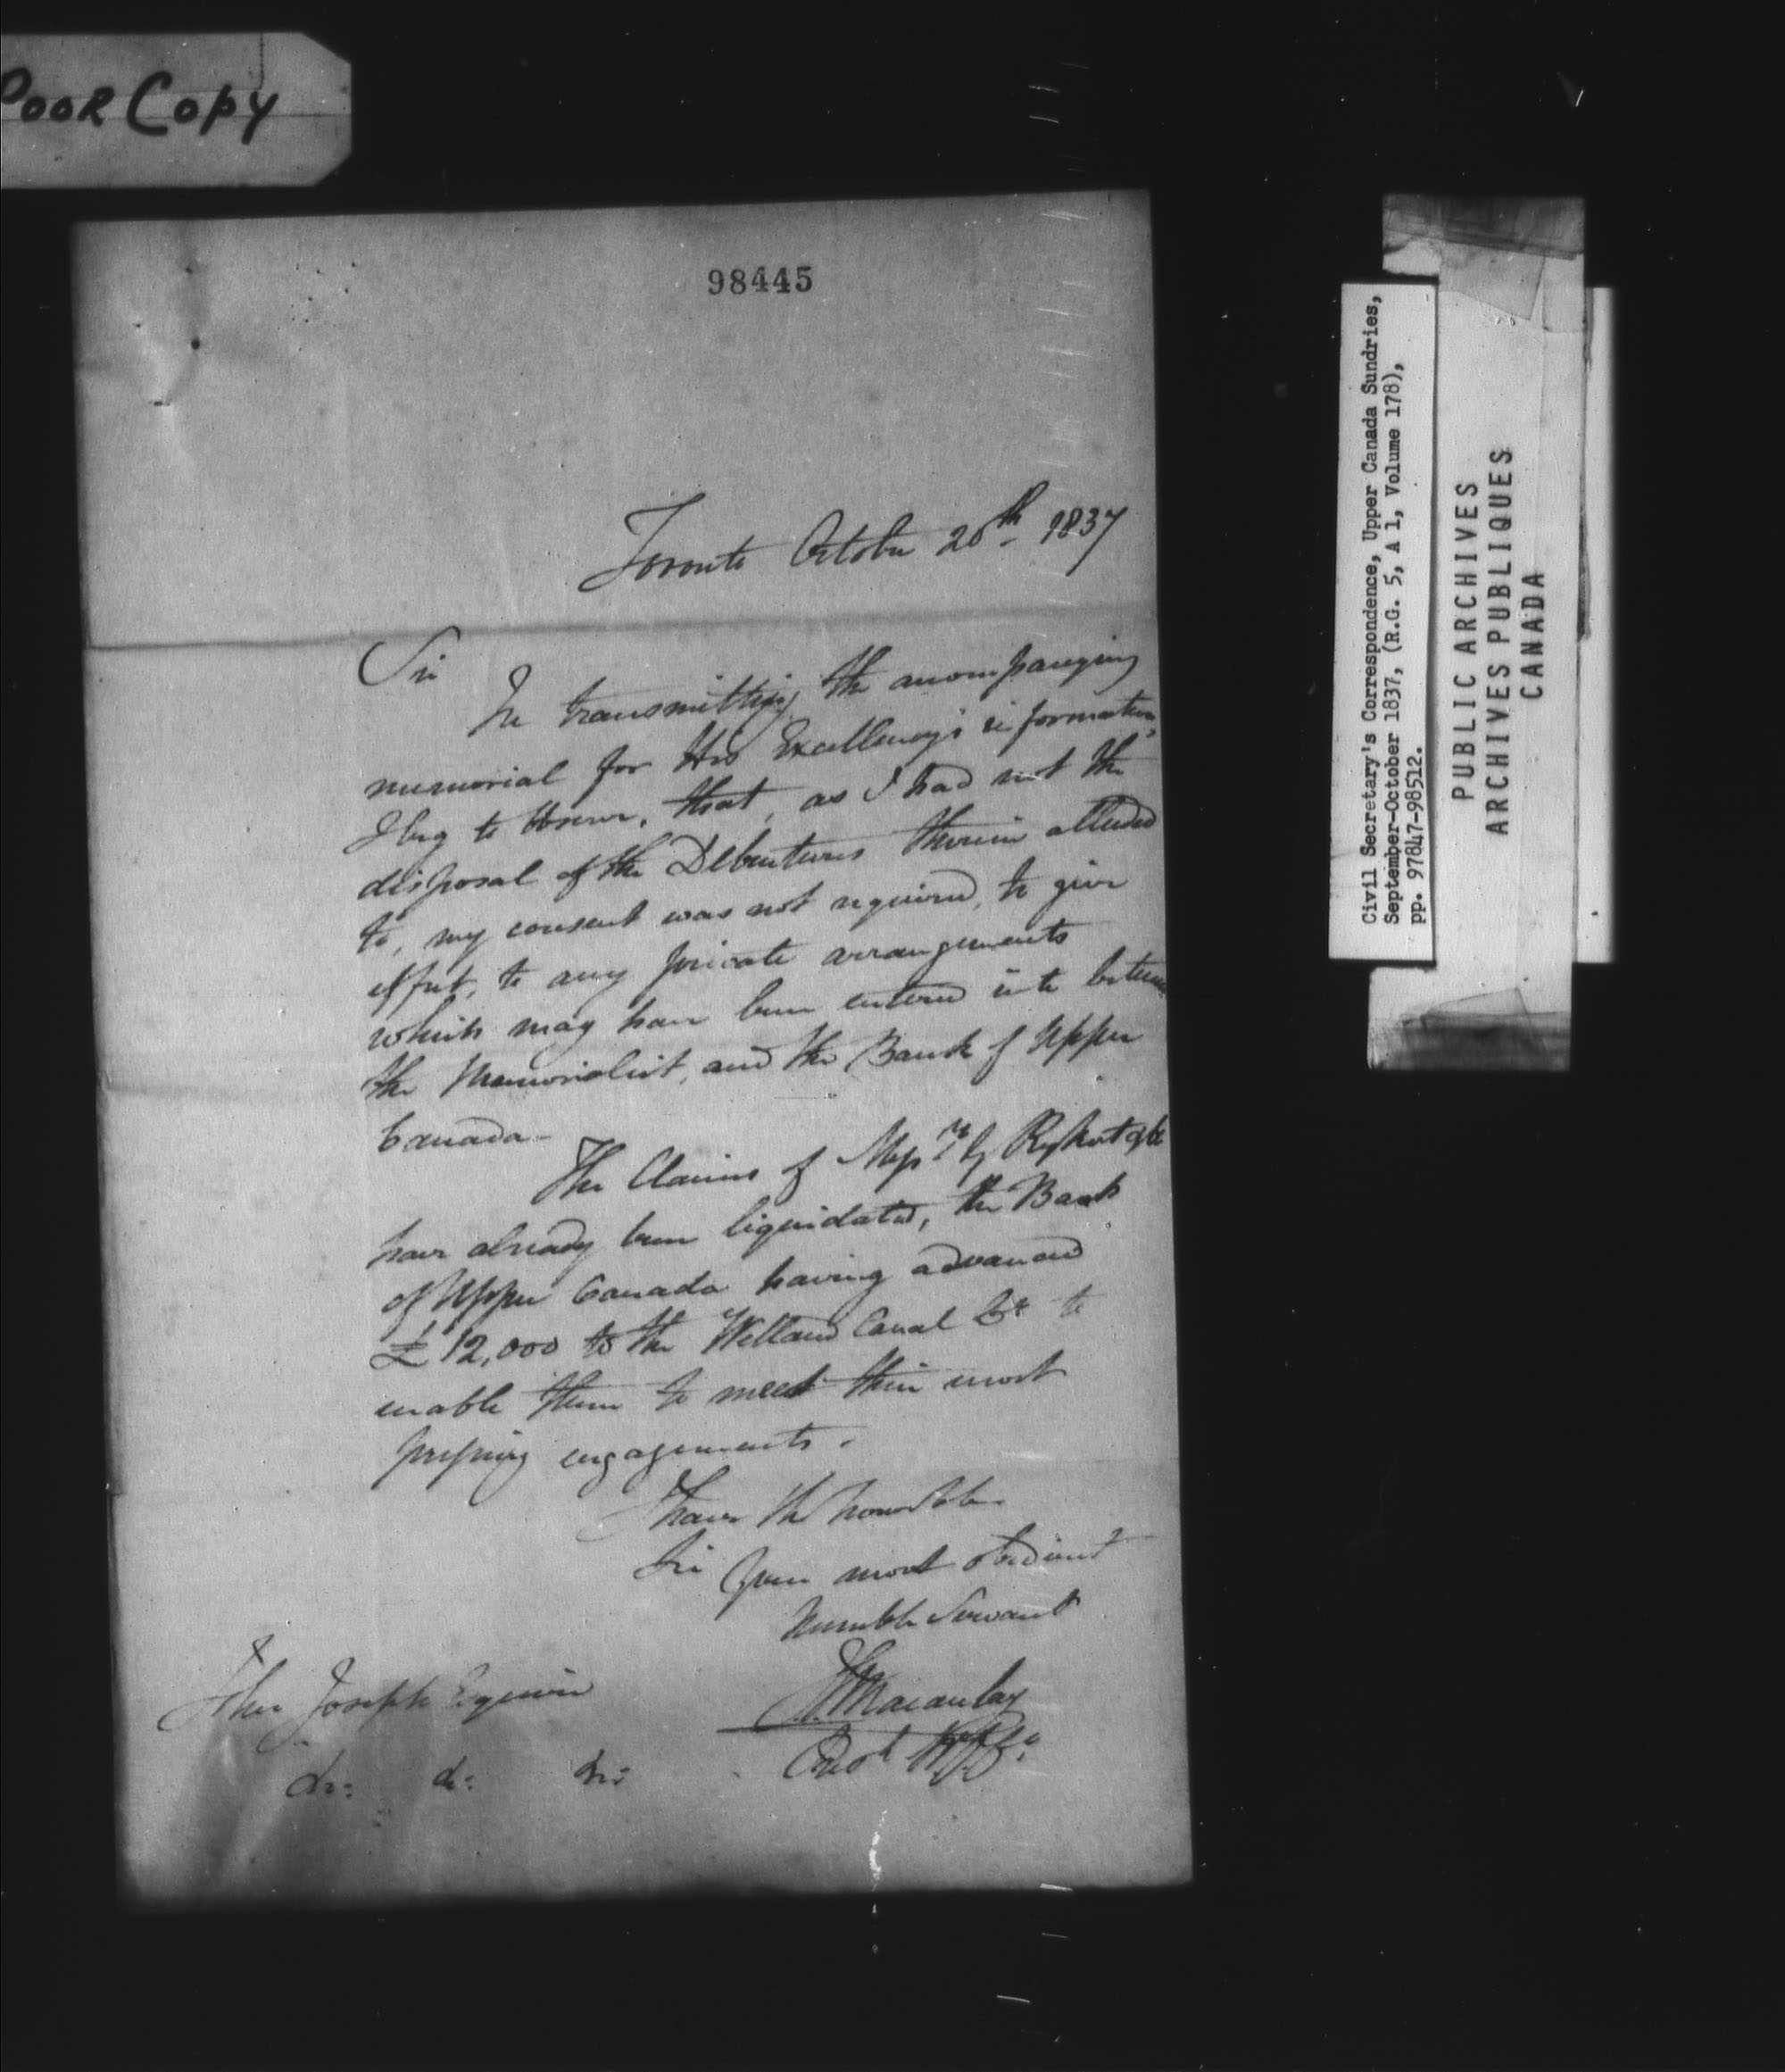 Poor Copy
98445
Toronto October 20th 1837
Sir
In transmitting the accompanying
memorial for His Excellency's information,
I beg to observe, that, as I had not the
disposal of the Debentures therein alluded
to, my consent was not required, to give
effect, to any private arrangements
which may have been entered into between
the Memorialist, and the Bank of Upper
Canada—
The Claims of Messrs Rykert &Co
have already been liquidated, the Bank
of Upper Canada having advanced
£12,000 to the Welland Canal Co to
enable them to meet their most
pressing engagements.
I have the honor to be
Sir Your most obedient
Humble Servant
Macaulay
John Joseph Esquire
&c: &c: &c:
Civil Secretary's Correspondence, Upper Canada Sundries,
September-October 1837, (R.G. 5, A 1, Volume 178),
pp. 97847-98512.
PUBLIC ARCHIVES
ARCHIVES PUBLIQUES
CANADA